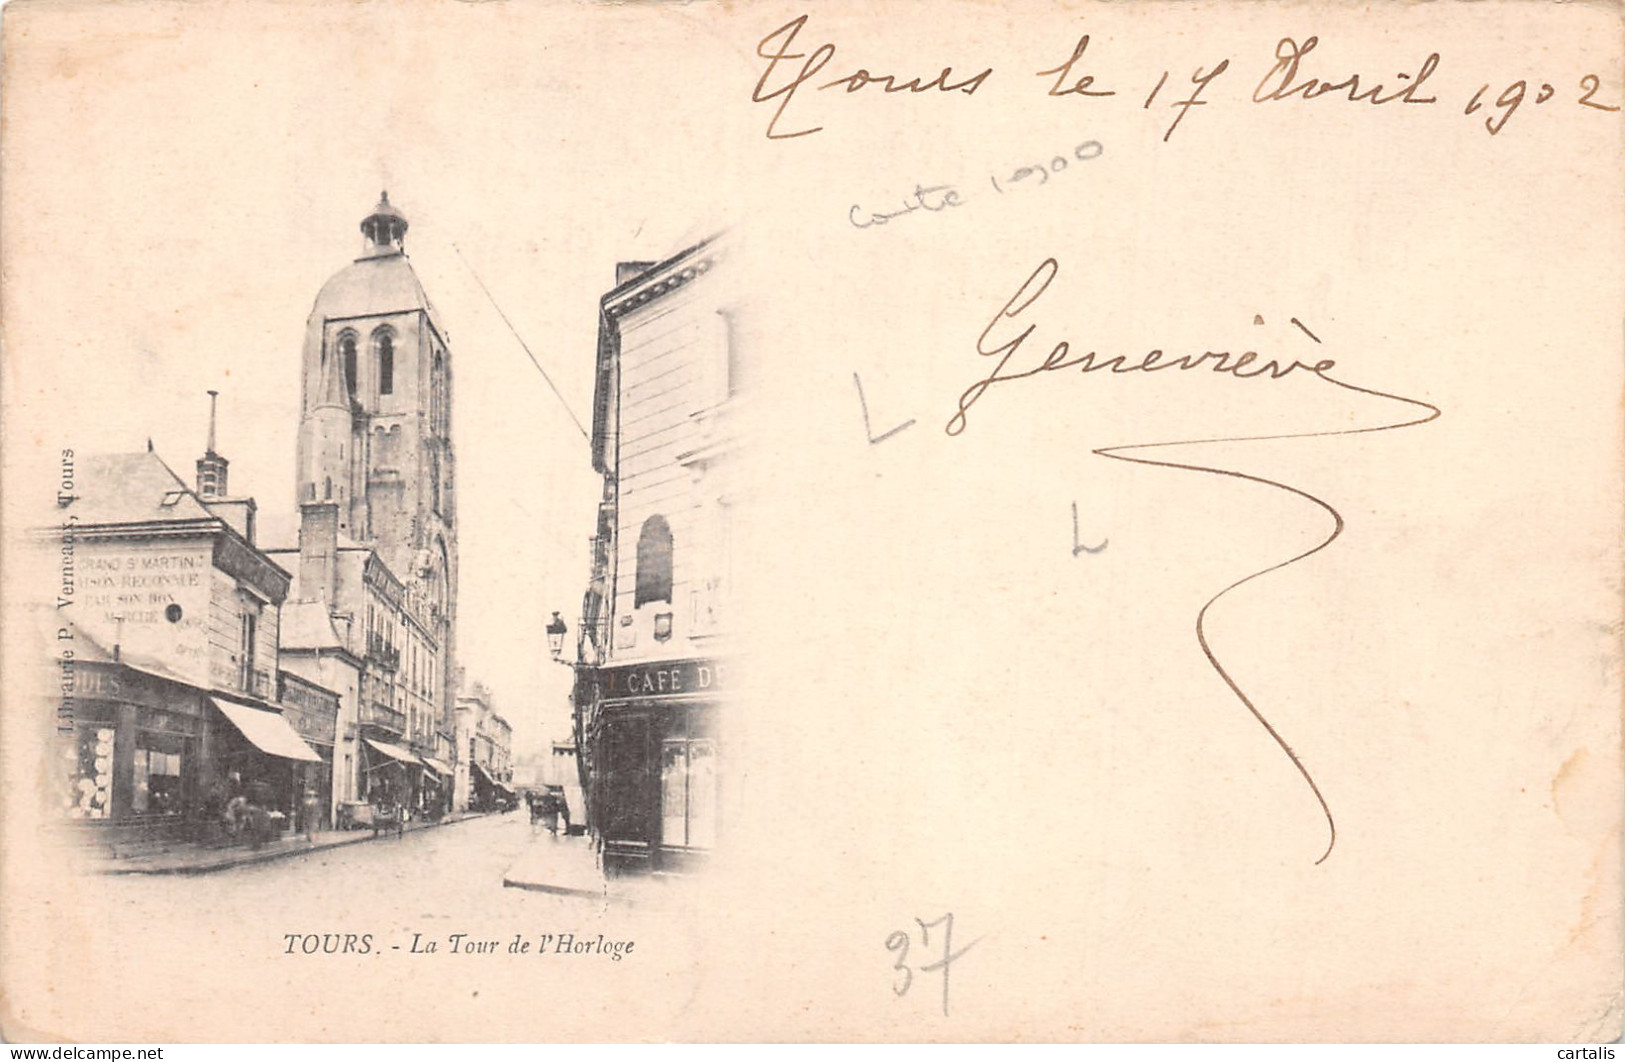 Tours le 17 Avril 1902
carte 1900
Geneviève
L
L
37
Librairie P. Verneaux, Tours
GRAND St MARTIN
RECONNUE
PAR SON BON
MARCHÉ
CAFÉ DE
TOURS. - La Tour de l'Horloge
delcampe.net
cartalis